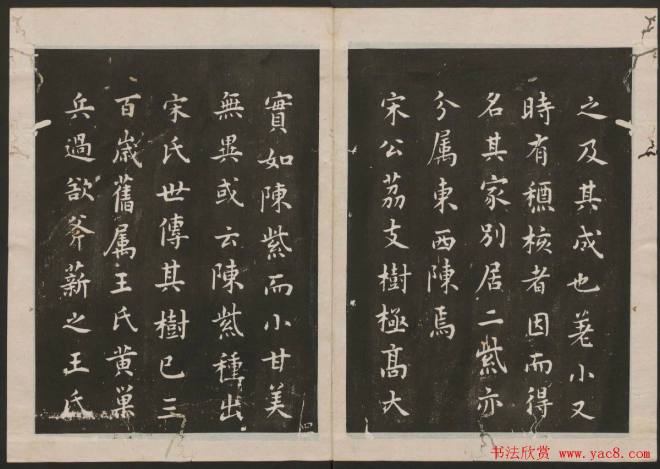 之及其成也差小又
時有穗核者因而得
名其家别居二紫亦
分属東西陳焉
宋公荔支樹極髙大
實如陳紫而小甘美
無異或云陳紫種出
宋氏世傳其樹已三
百歲舊属王氏黄巢
兵過欲斧薪之王氏
四
书法欣赏 www.yac8.com